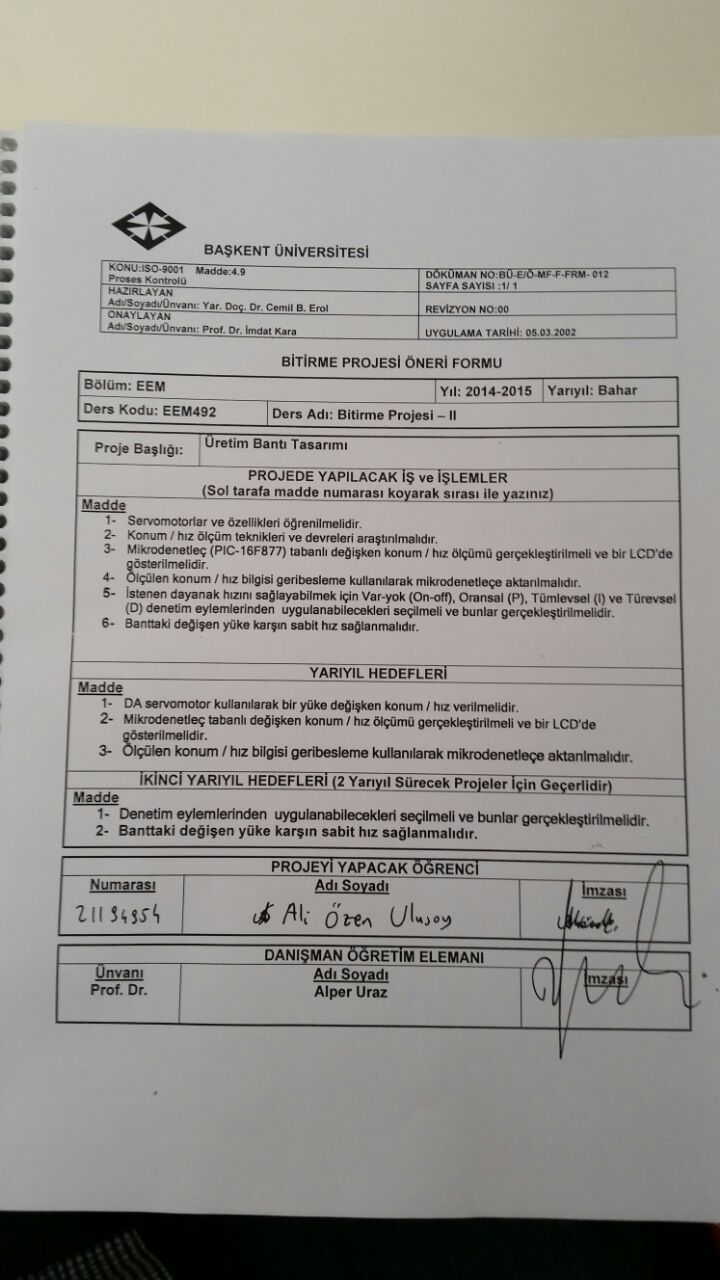 BAŞKENT ÜNİVERSİTESİ
KONU:ISO-9001 Madde:4.9
Proses Kontrolü
DÖKÜMAN NO:BÜ-E/Ö-MF-F-FRM- 012
SAYFA SAYISI :1/ 1
HAZIRLAYAN
Adı/Soyadı/Ünvanı: Yar. Doç. Dr. Cemil B. Erol
REVİZYON NO:00
ONAYLAYAN
Adı/Soyadı/Ünvanı: Prof. Dr. İmdat Kara
UYGULAMA TARİHİ: 05.03.2002
BİTİRME PROJESİ ÖNERİ FORMU
Bölüm: EEM Yıl: 2014-2015 Yarıyıl: Bahar
Ders Kodu: EEM492 Ders Adı: Bitirme Projesi – II
Proje Başlığı: Üretim Bantı Tasarımı
PROJEDE YAPILACAK İŞ ve İŞLEMLER
(Sol tarafa madde numarası koyarak sırası ile yazınız)
Madde
1- Servomotorlar ve özellikleri öğrenilmelidir.
2- Konum / hız ölçüm teknikleri ve devreleri araştırılmalıdır.
3- Mikrodenetleç (PIC-16F877) tabanlı değişken konum / hız ölçümü gerçekleştirilmeli ve bir LCD'de
gösterilmelidir.
4- Ölçülen konum / hız bilgisi geribesleme kullanılarak mikrodenetleçe aktarılmalıdır.
5- İstenen dayanak hızını sağlayabilmek için Var-yok (On-off), Oransal (P), Tümlevsel (I) ve Türevsel
(D) denetim eylemlerinden uygulanabilecekleri seçilmeli ve bunlar gerçekleştirilmelidir.
6- Banttaki değişen yüke karşın sabit hız sağlanmalıdır.
YARIYIL HEDEFLERİ
Madde
1- DA servomotor kullanılarak bir yüke değişken konum / hız verilmelidir.
2- Mikrodenetleç tabanlı değişken konum / hız ölçümü gerçekleştirilmeli ve bir LCD'de
gösterilmelidir.
3- Ölçülen konum / hız bilgisi geribesleme kullanılarak mikrodenetleçe aktarılmalıdır.
İKİNCİ YARIYIL HEDEFLERİ (2 Yarıyıl Sürecek Projeler İçin Geçerlidir)
Madde
1- Denetim eylemlerinden uygulanabilecekleri seçilmeli ve bunlar gerçekleştirilmelidir.
2- Banttaki değişen yüke karşın sabit hız sağlanmalıdır.
PROJEYİ YAPACAK ÖĞRENCİ
Numarası Adı Soyadı İmzası
21194954 Ali Özen Ulusoy
DANIŞMAN ÖĞRETİM ELEMANI
Ünvanı Adı Soyadı İmzası
Prof. Dr. Alper Uraz